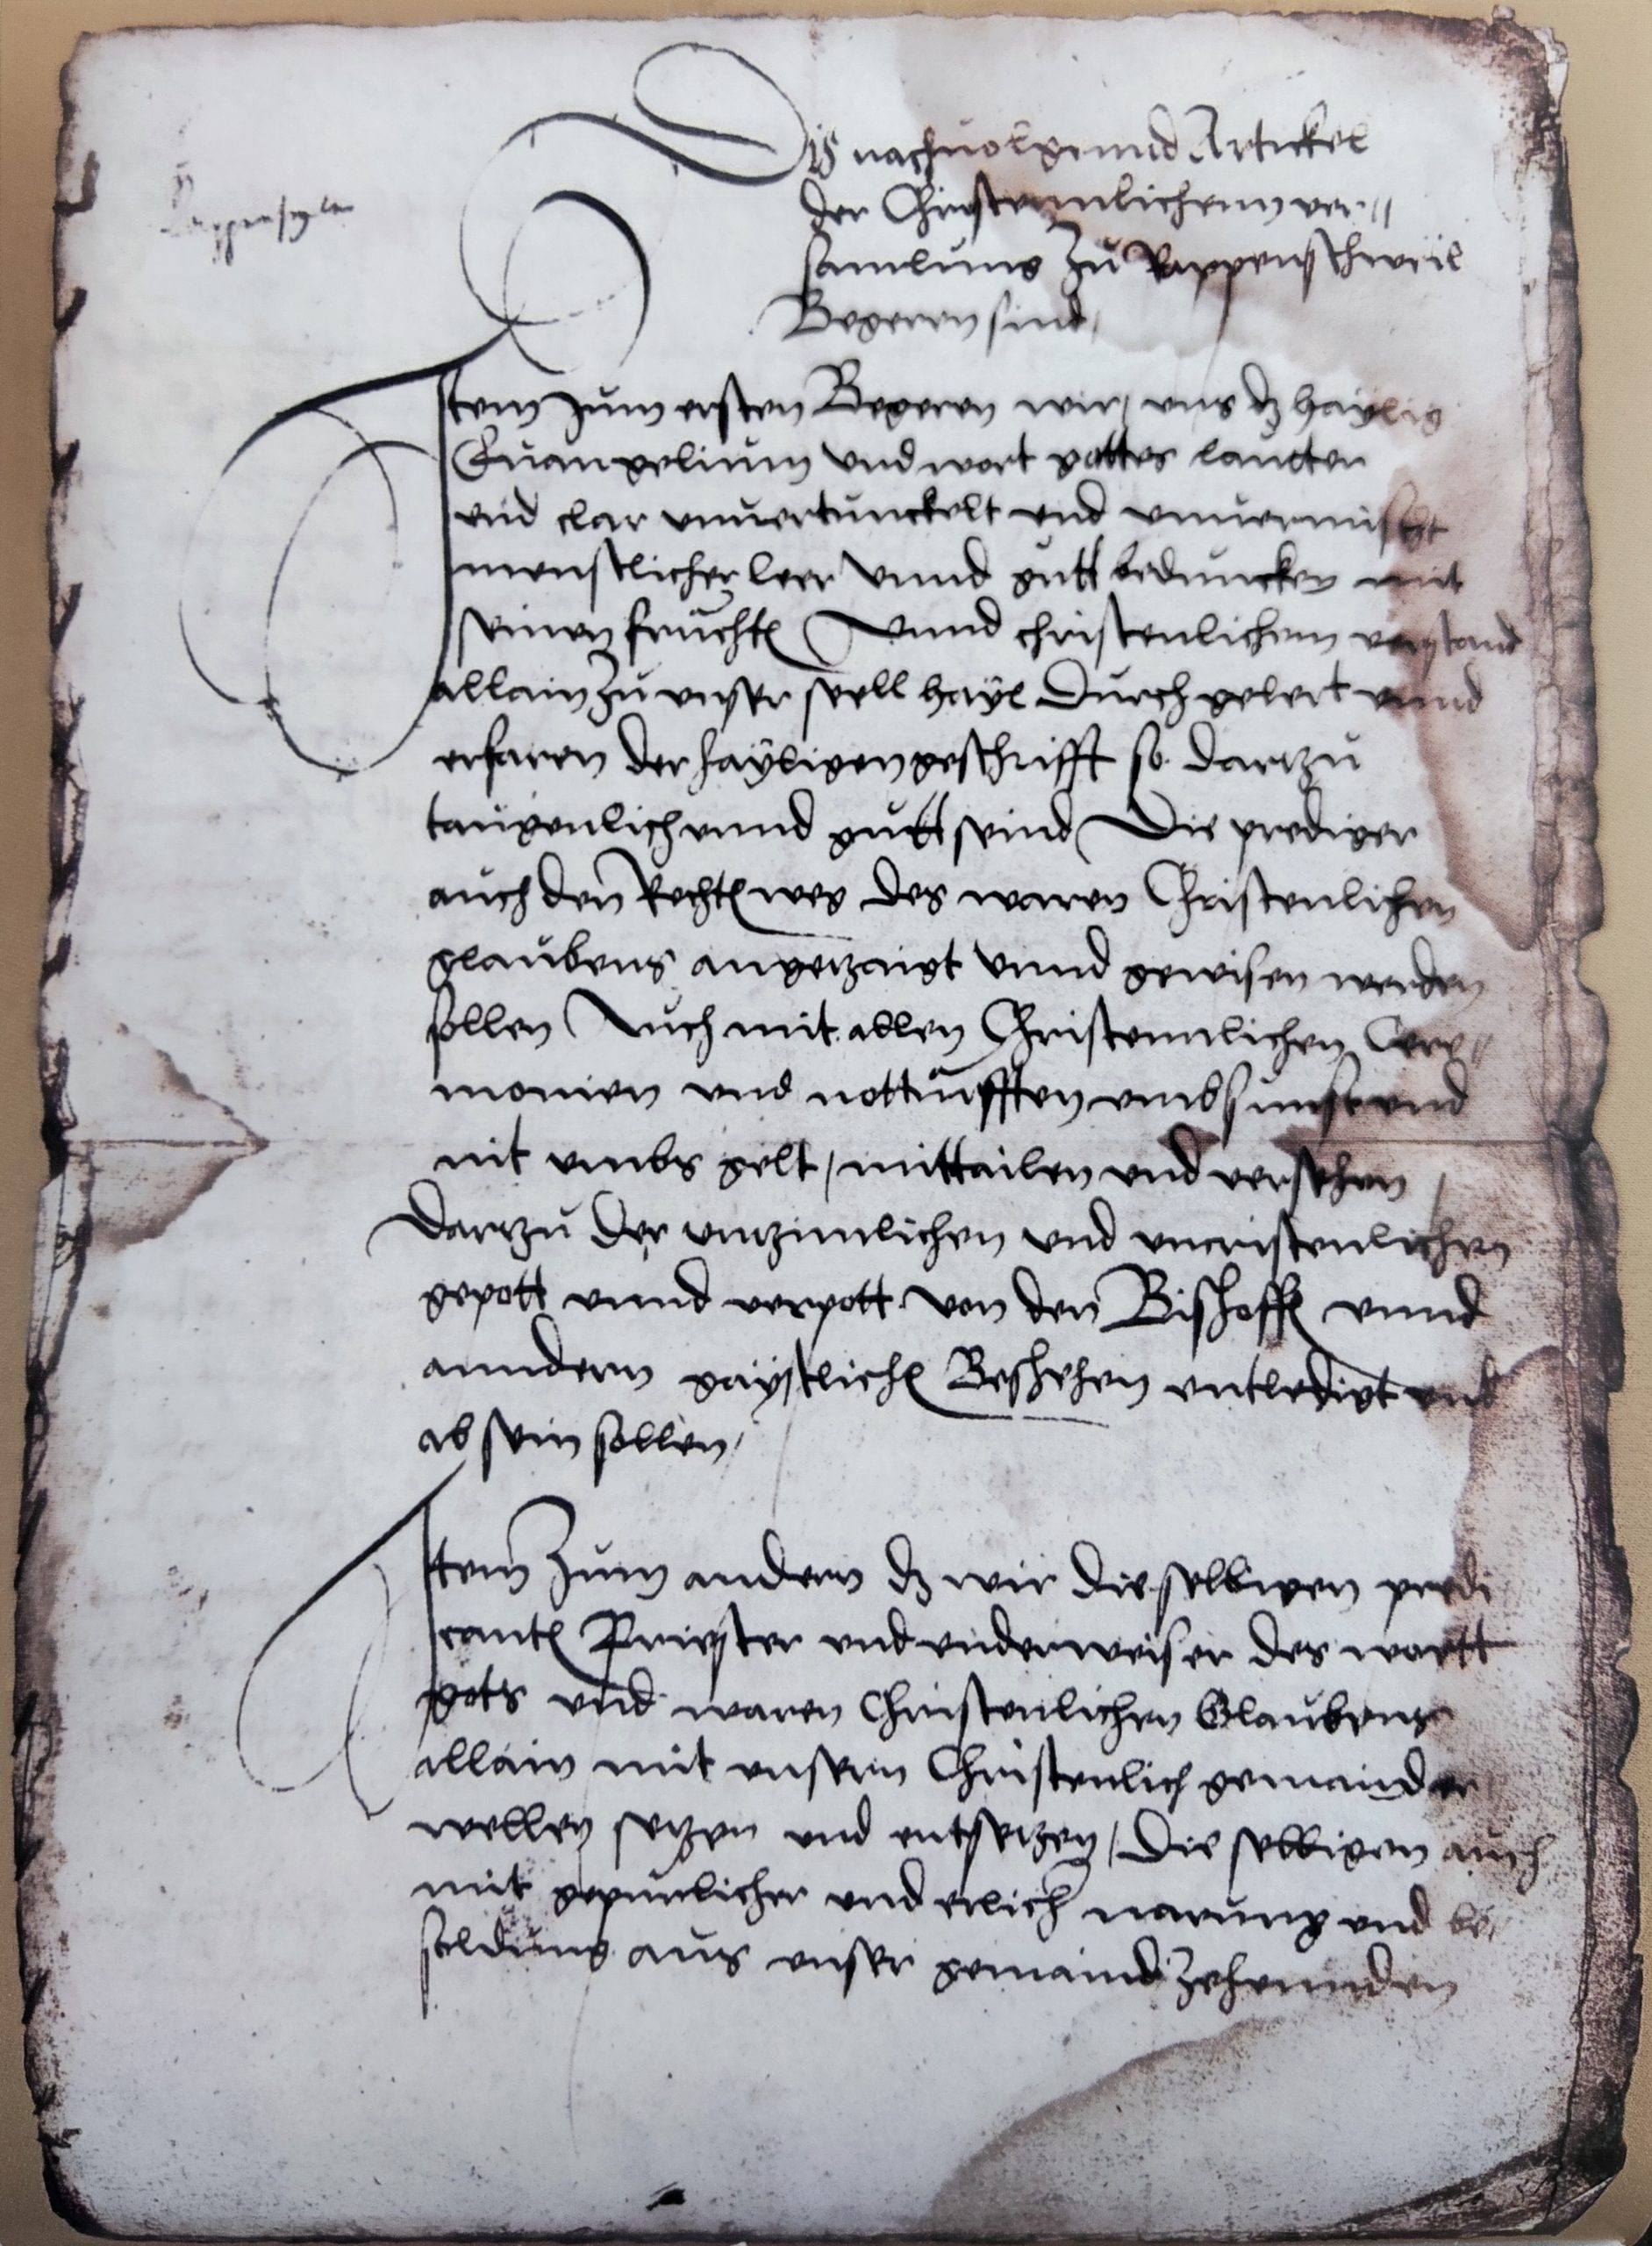 Dis nachuolgennd Artickel
der Christennlichenn ver-
samlung Zu Rappenschweil
Begeren sind,
Item zum ersten Begeren wir, vns dz haylig
Euangelium vnd wort gottes lautter
vnd clar vnuertunckelt vnd vnuermischt
menschlicher leer vnnd gutt beduncken mit
seinen frucht vnnd christenlichem verstand
allain zu vnser seell hayl Durch gelert vnnd
erfaren der hayligen geschrifft so dartzu
taugenlich vnnd gutt seind Die prediger
auch den Recht weg des waren Christenlichen
glaubens angezaigt vnnd gewisen werden
sollen Auch mit allen Christennlichen Cere-
monien vnd notturfften vmbsunst vnd
nit vmbs gelt, mittailen vnd versehen
Dartzu der vnzimlichen vnd vncristenlichen
gepott vnnd verpott von den Bischoff vnnd
anndern gaystlich Beschehen entledigt vnd
ab sein sollen,
Item Zum andern dz wir die selbigen predi
cant Priester vnd vnderweiser des wortt
gots vnd waren Christenlichen Glaubens
allain mit vnsern Christenlich gemainder
wellen setzen vnd entsetzen, Die selbigen auch
mit gepurlicher vnd erlich narung vnd be-
soldung aus vnser gemaind Zehennden